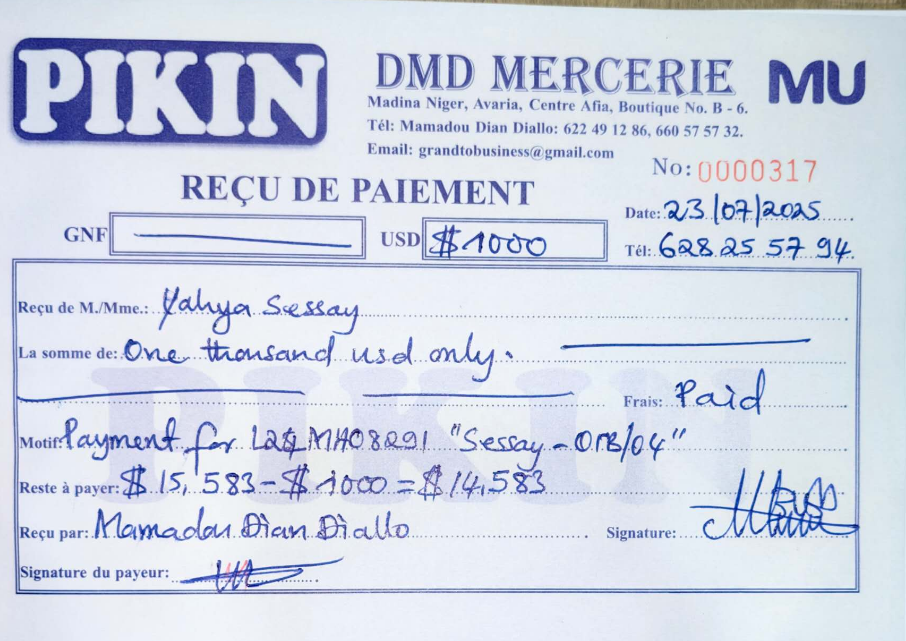 PIKIN
DMD MERCERIE MU
Madina Niger, Avaria, Centre Afia, Boutique No. B - 6.
Tél: Mamadou Dian Diallo: 622 49 12 86, 660 57 57 32.
Email: grandtobusiness@gmail.com
No: 0000317
REÇU DE PAIEMENT
Date: 23/07/2025
GNF USD $1000
Tél: 628 25 57 94
Reçu de M./Mme.: Yahya Sessay
La somme de: One thousand usd only.
Frais: Paid
Motif: Payment for "Sessay - OTB/04"
Reste à payer: $15,583 - $1000 = $14,583
Reçu par: Mamadou Dian Diallo Signature:
Signature du payeur:
PIKIN